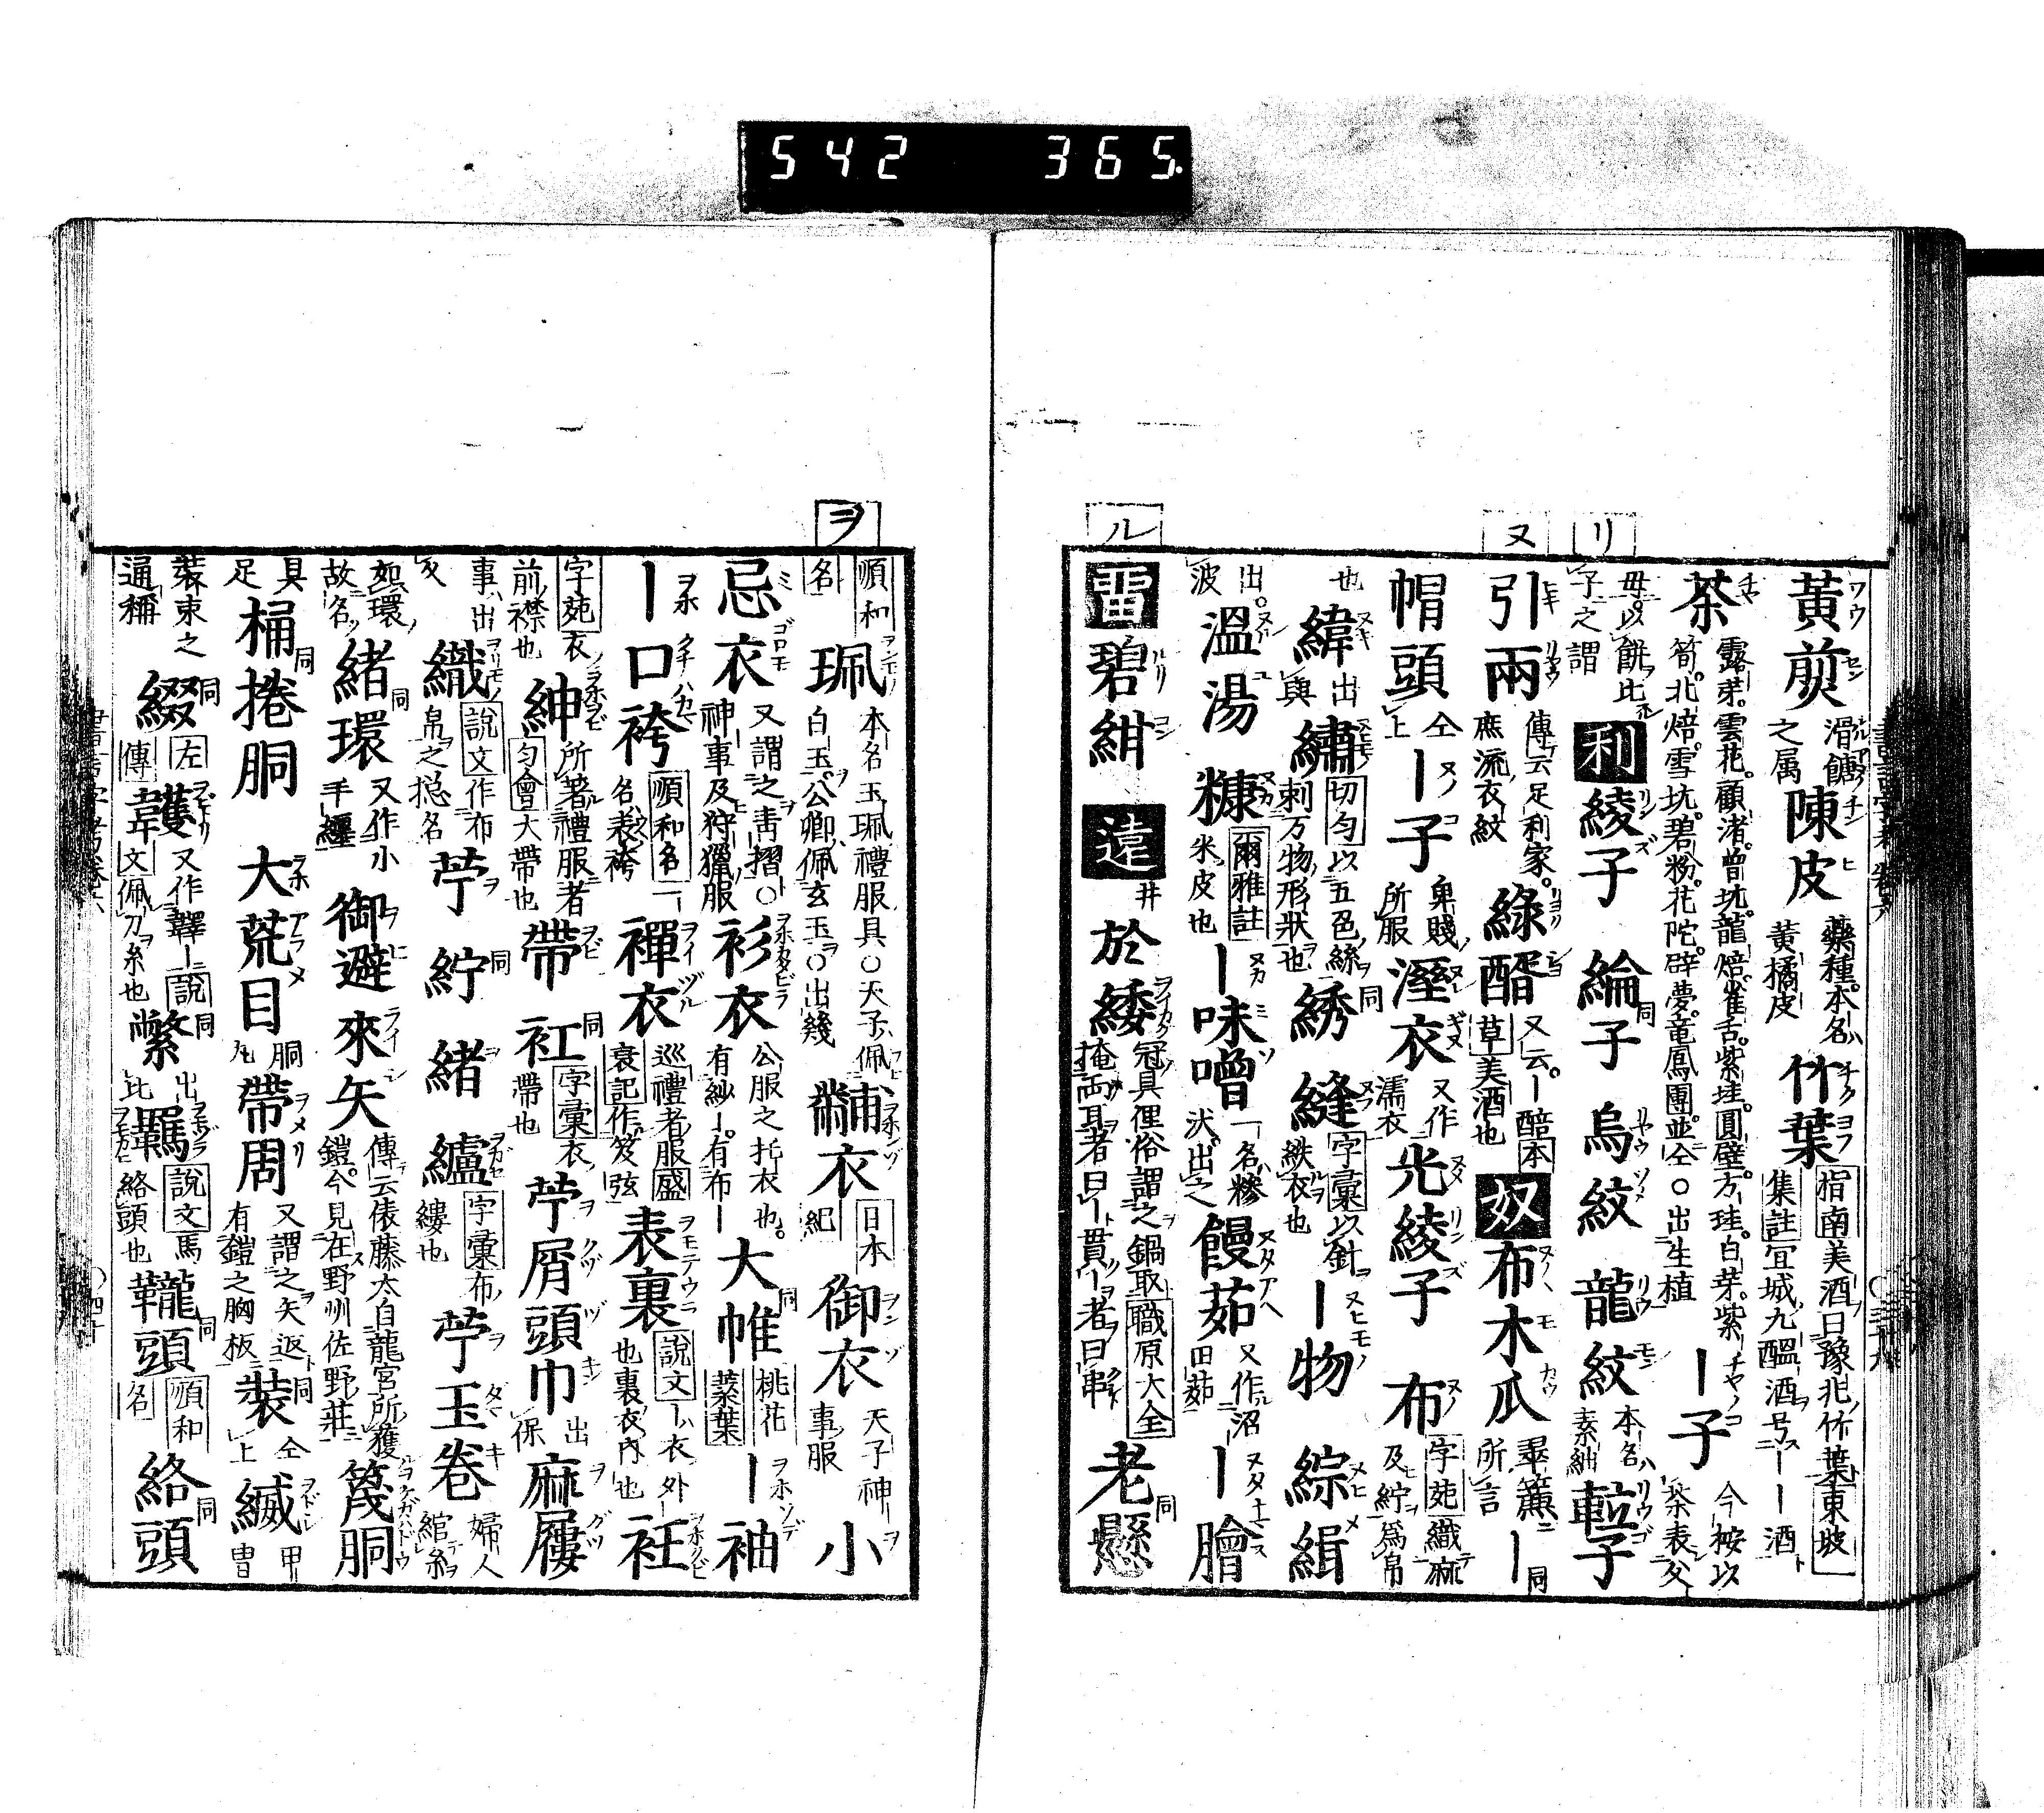 542 365.
リ
ヌ
ル
黄煎 滑餹之属 陳皮 藥種本名黄橘皮 竹葉 指南美酒曰豫北竹葉東坡集註宜城九醞酒号ーー酒
茶 露芽。雲花。顧渚。曽坑。龍焙。雀舌。紫珪。圓璧。方珪。白芽。紫筍。北焙。雪坑。碧粉。花陀。辟夢。竜鳳團。並仝○出生植 ー子 今按以茶表父
母。以餅比子之謂 利 綾子 綸子 同 烏紋 龍紋 本名素紬 輪子
引兩 傳云足利家。庶流衣紋 綠醑 又云。ー醅本草美酒也 奴 布木瓜 所言 ー 同
帽頭 仝上 ー子 卑賤所服 溼衣 又作濡衣 光綾子 布 字苑織麻及紵爲帛
也 緯 出與 繡 切匀以五色絲刺万物形狀也 綉 同 縫 字彙以針紩衣也 ー物 綜緝
出。波 溫湯 糠 爾雅註米皮也 ー味噌 一名糝汏出之 饅茹 又作沼田茹 ー膾
留 碧紺 遠 井 於緌 冠具俚俗謂之鍋取職原大全掩両耳者曰ー貫ー者曰串 老懸 同
ヲ
順和名 珮 本名玉珮禮服具○天子佩白玉。公卿佩玄玉○出幾 黼衣 日本紀 御衣 天子神事服 小
忌衣 又謂之青摺○神事及狩獵服 衫衣 公服之托衣也。有紗ー。有布ー 大帷 同 桃花蘂葉 ー袖
ー口袴 順和名一名表袴 襌衣 巡禮者服盛衰記作笈弦 表裏 說文ー衣外也裏衣內也 衽
字苑衣前襟也 紳 所著禮服者匀會大帶也 帶 衦 同 字彙衣帶也 苧屑頭巾 出保 麻屨
事出 織 說文作布帛之捴名 苧 紵 同 緒 纑 字彙布縷也 苧玉卷 婦人綰糸
如環故名 緒環 同 又作小手纒 御避來矢 傳云俵藤太自龍宮所獲鎧。今見在野州佐野莊 篾胴
具足 桶捲胴 同 大荒目 胴丸 帶周 又謂之矢返有鎧之胸板 裝 同 仝上 縅 甲冑
裝束之通稱 綴 同 左傳 韄 又作韚ー說文佩刀糸也 繁 同 出比 羈 說文馬絡頭也 鞴頭 同 順和名 絡頭 同